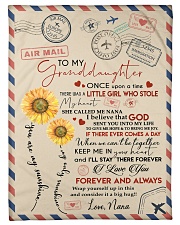 AIR MAIL
TO MY
Granddaughter
ONCE upon a time
THERE WAS A LITTLE GIRL WHO STOLE
My heart
SHE CALLED ME NANA
I believe that GOD
SENT YOU INTO MY LIFE
TO GIVE ME HOPE & TO BRING ME JOY.
IF THERE EVER COMES A DAY
When we can't be together
KEEP ME IN your heart
and I'LL STAY THERE FOREVER
I Love You
FOREVER AND ALWAYS
Wrap yourself up in this
and consider it a big hug!
Love, Nana
You are my sunshine,
my only sunshine